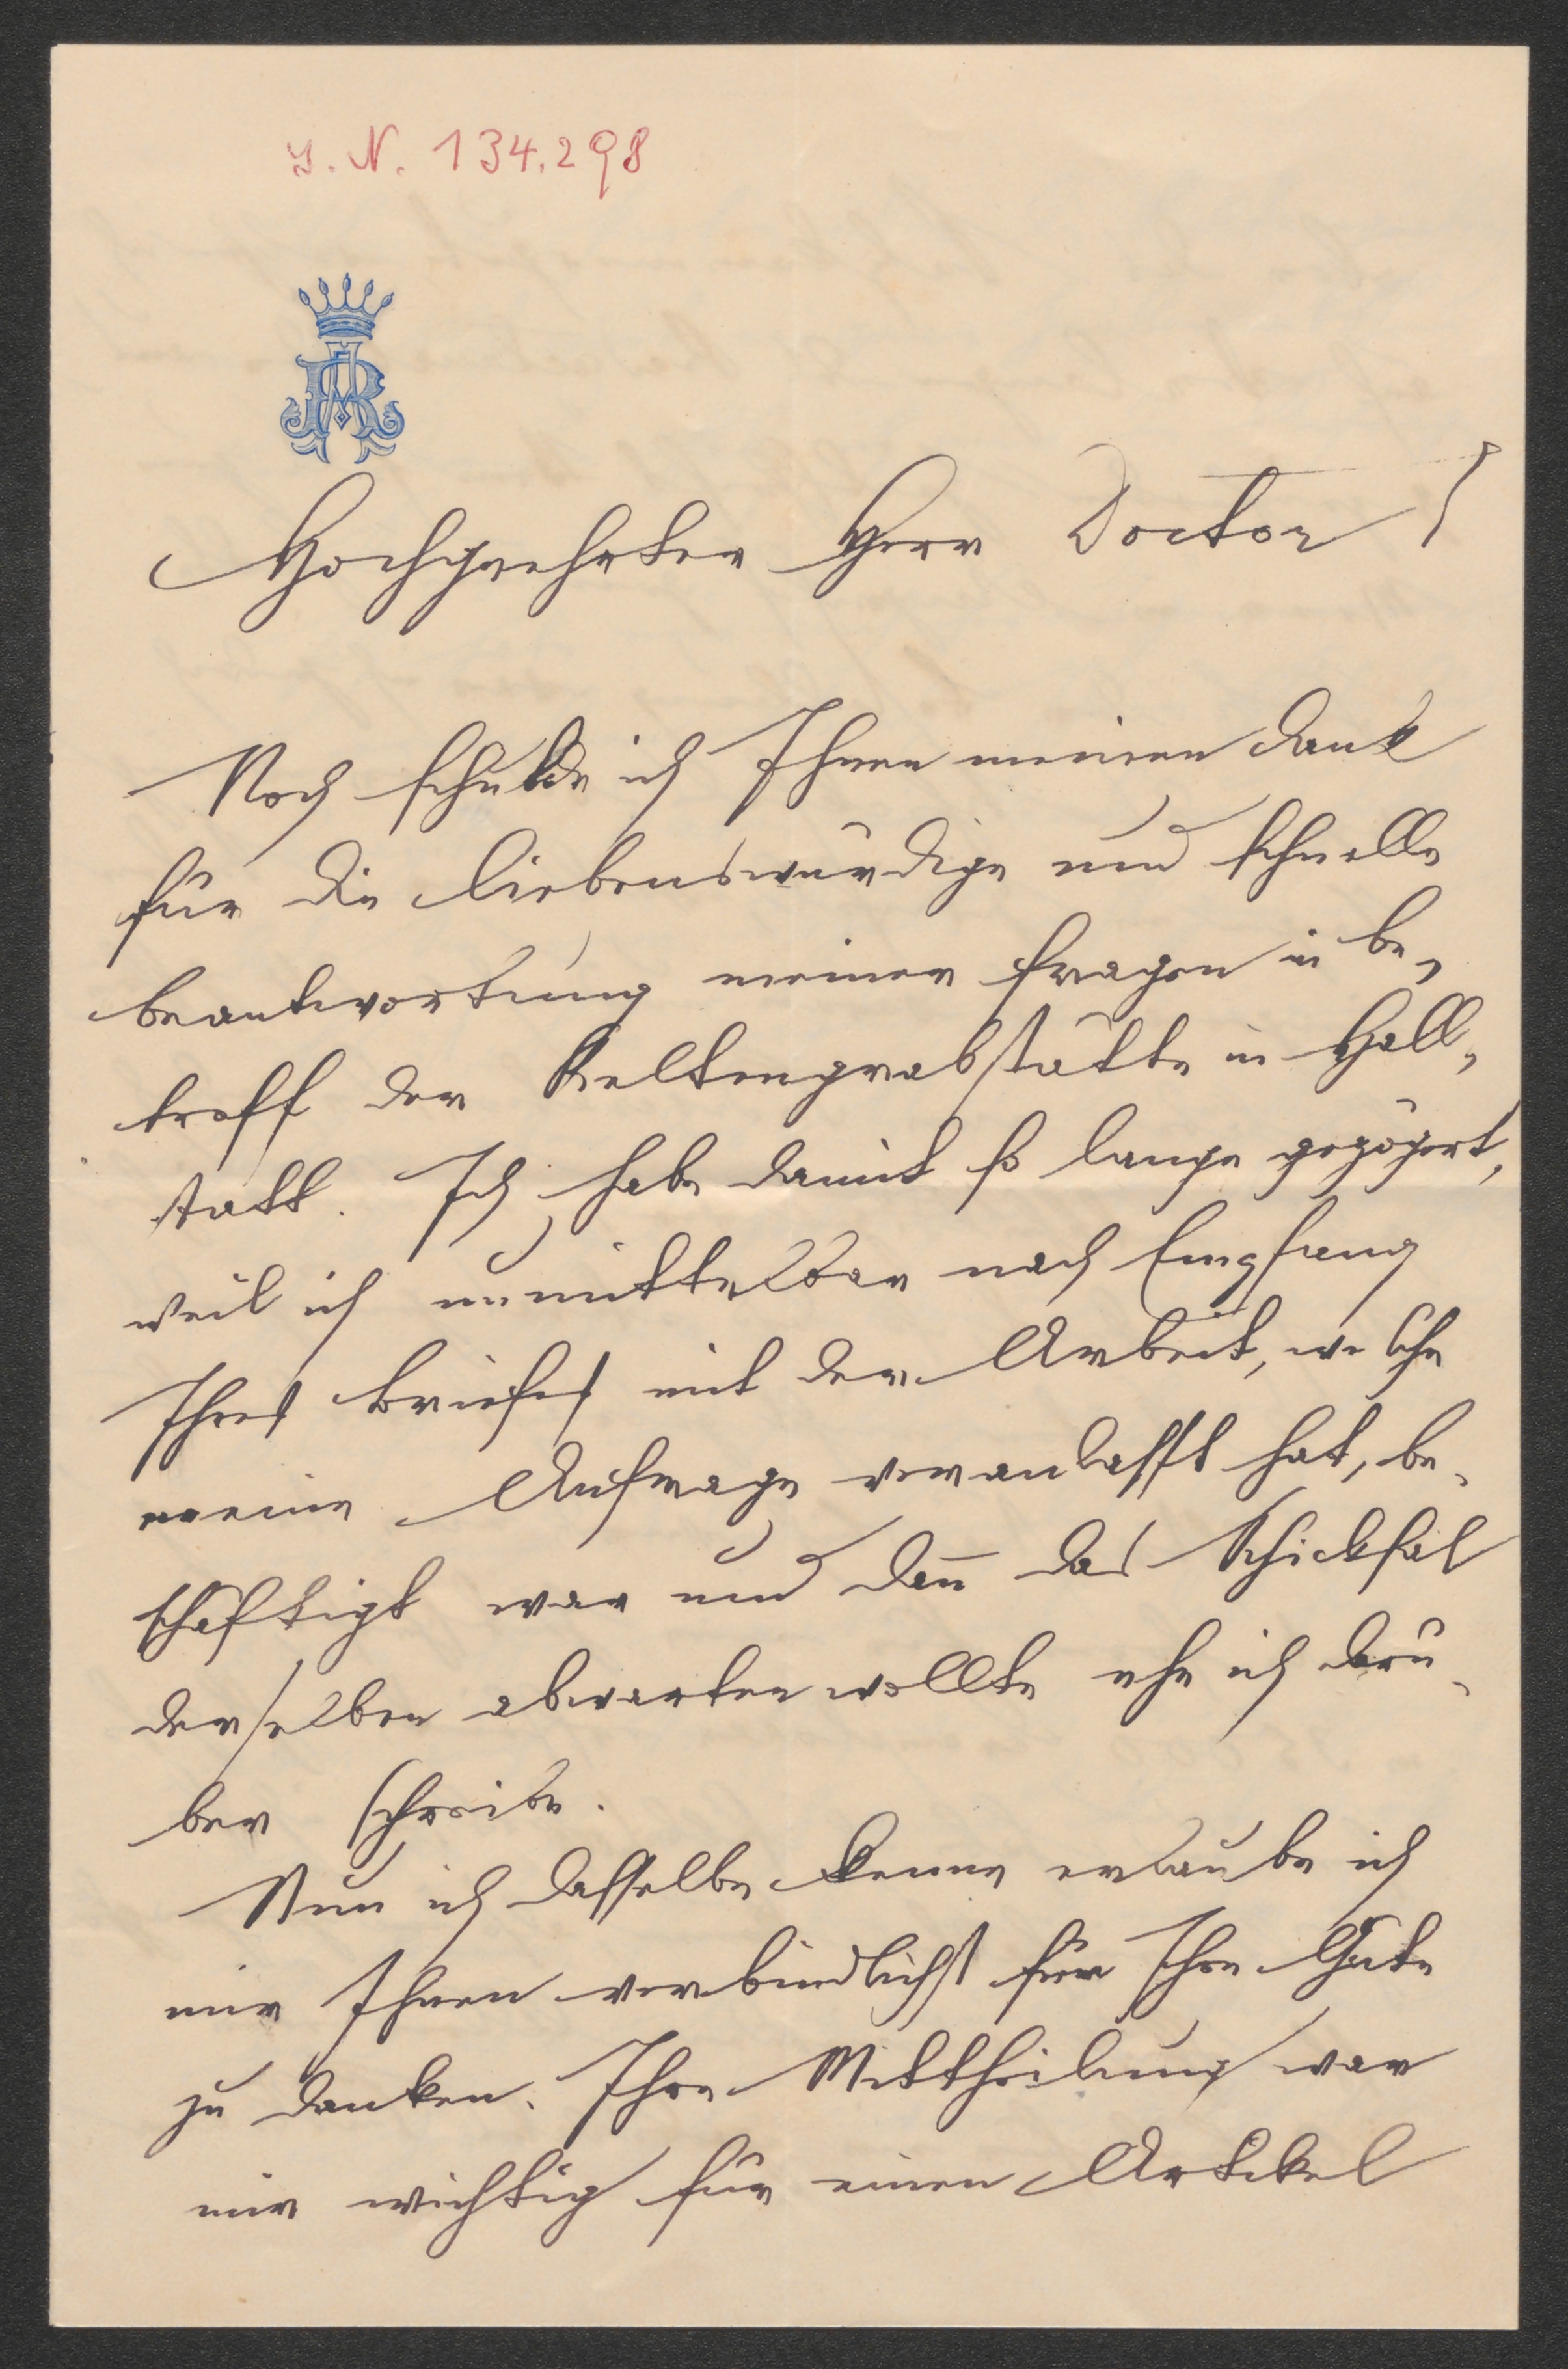 I. N. 134.298
AR
Hochgeehrter Herr Doctor!
Noch schulde ich Ihnen meinen Dank
für die liebenswürdige und schnelle
Beantwortung meiner Fragen in be-
treff der Keltengrabstätte in Hall-
statt. Ich habe damit so lange gezögert,
weil ich unmittelbar nach Empfang
Ihres Briefes mit der Arbeit, welche
meine Anfrage veranlasst hat, be-
schäftigt war und dan̅ das Schicksal
derselben abwarten wollte ehe ich darü-
ber schreibe.
Nun ich dasselbe kenne erlaube ich
mir Ihnen verbindlichst für Ihre Güte
zu danken. Ihre Mittheilung war
mir wichtig für einen Artikel